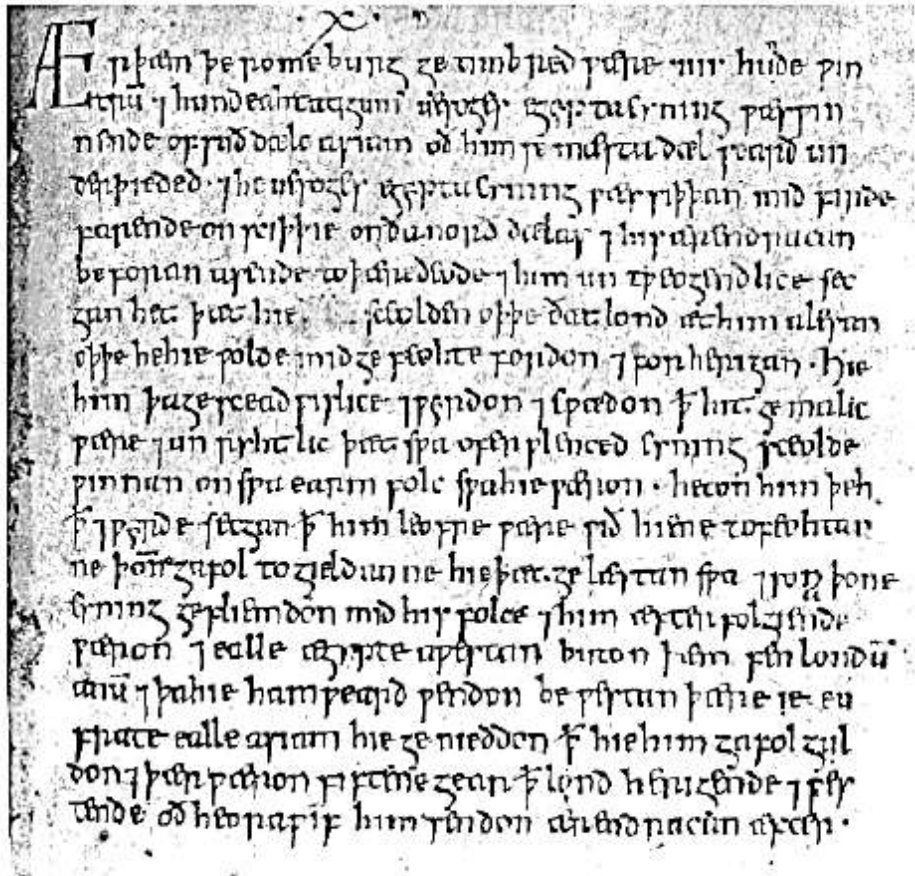 ·X·
ÆR þæm þe romeburg getimbred ƿære ·iiii· hunde ƿin
trū ⁊ hundeahtatigum uesoges egypta cyning ƿæs ƿin
nende of suð dæle asiam oð him se mæsta dæl ƿearð un
derþieded · ⁊ he uesoges egypta cyning ƿæs siþþan mid firde
farende on sciþþie on ða norð dælas ⁊ his ærendracan
beforan asende to þære ðeode ⁊ him untƿeogendlice sec
gan het þæt hie sceolden oþþe ðæt lond æt him alesan
oþþe he hie ƿolde mid gefeohte fordon ⁊ forherigan · hie
him þa gesceadƿislice ⁊ƿyrdon ⁊ cƿædon þ̄ hit gemalic
ƿære ⁊ unryhtlic þæt sƿa oferƿlenced cyning sceolde
ƿinnan on sƿa earm folc sƿa hie ƿæron · heton him þeh
þ̄ ⁊ƿyrde secgan þ̄ him leofre ƿære ƿið hiene to feohtan
ne þoñe gafol to gieldanne hie þæt gelæstan sƿa ⁊ sona þone
cyning gefliemdon mid his folce ⁊ him æfterfolgiende
ƿæron ⁊ ealle ægypte aƿestan buton þæm fenlondū
anū ⁊ þa hie hamƿeard ƿendon be ƿestan þære ie eu
frate ealle asiam hie genieddon þ̄ hie him gafol gul
don ⁊ þær ƿæron fiftene gear þ̄ lond herigende ⁊ ƿes
tende oð heora ƿif him sendon ærendracan æfter ·